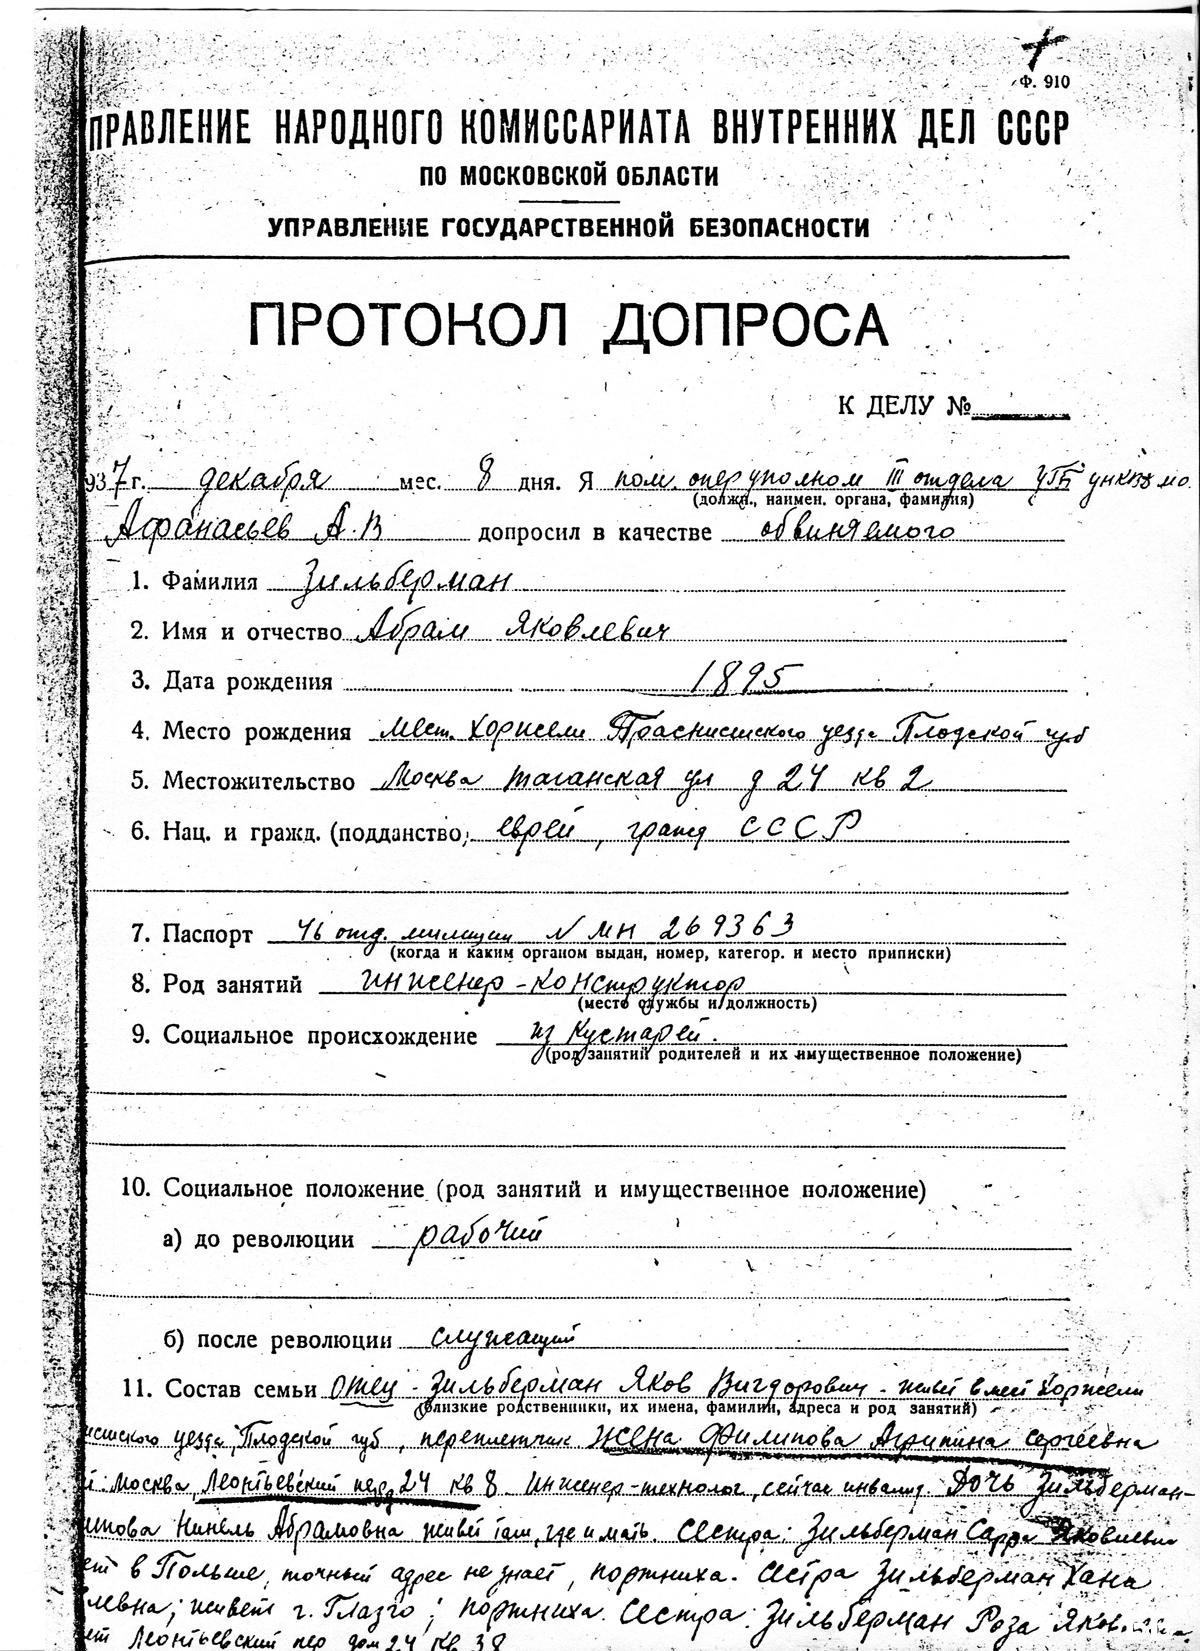 Ф. 910
ПРАВЛЕНИЕ НАРОДНОГО КОМИССАРИАТА ВНУТРЕННИХ ДЕЛ СССР
ПО МОСКОВСКОЙ ОБЛАСТИ
УПРАВЛЕНИЕ ГОСУДАРСТВЕННОЙ БЕЗОПАСНОСТИ
ПРОТОКОЛ ДОПРОСА
К ДЕЛУ №
937 г. декабря мес. 8 дня. Я пом. оперуполном III отдела УГБ УНКВД МО.
(должн., наимен. органа, фамилия)
Афанасьев А.В допросил в качестве обвиняемого
1. Фамилия Зильберман
2. Имя и отчество Абрам Яковлевич
3. Дата рождения 1895
4. Место рождения мест. Хоржели Праснишского уезда Плоцкой губ
5. Местожительство Москва Таганская ул д 24 кв 2
6. Нац. и гражд. (подданство) еврей, гражд СССР
7. Паспорт 46 отд. милиции N МН 269363
(когда и каким органом выдан, номер, категор. и место приписки)
8. Род занятий инженер-конструктор
(место службы и должность)
9. Социальное происхождение из кустарей.
(род занятий родителей и их имущественное положение)
10. Социальное положение (род занятий и имущественное положение)
а) до революции рабочий
б) после революции служащий
11. Состав семьи отец - Зильберман Яков Вигдорович - живет в мест Хоржели
(близкие родственники, их имена, фамилии, адреса и род занятий)
уезда, Плоцкой губ, переплетчик жена Филипова Агрипина Сергеевна
Москва, Леонтьевский пер д 24 кв 8 инженер-технолог, сейчас инвалид. Дочь Зильберман-
ипова Нинель Абрамовна живет там, где и мать. Сестра: Зильберман Сарра Яковлевна
ет в Польше, точный адрес не знает, портниха. Сестра Зильберман Хана
левна; живет г. Глазго; портниха. Сестра: Зильберман Роза Яков
ет Леонтьевский пер дом 24 кв 38